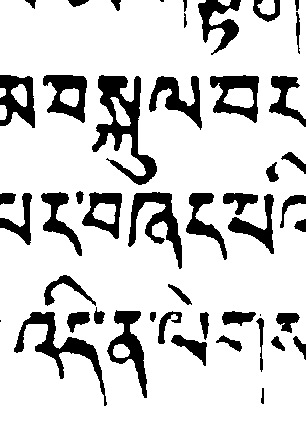 མབསྐུལབར
པར་བཞདཔའི
འདི་ན་ལེགས